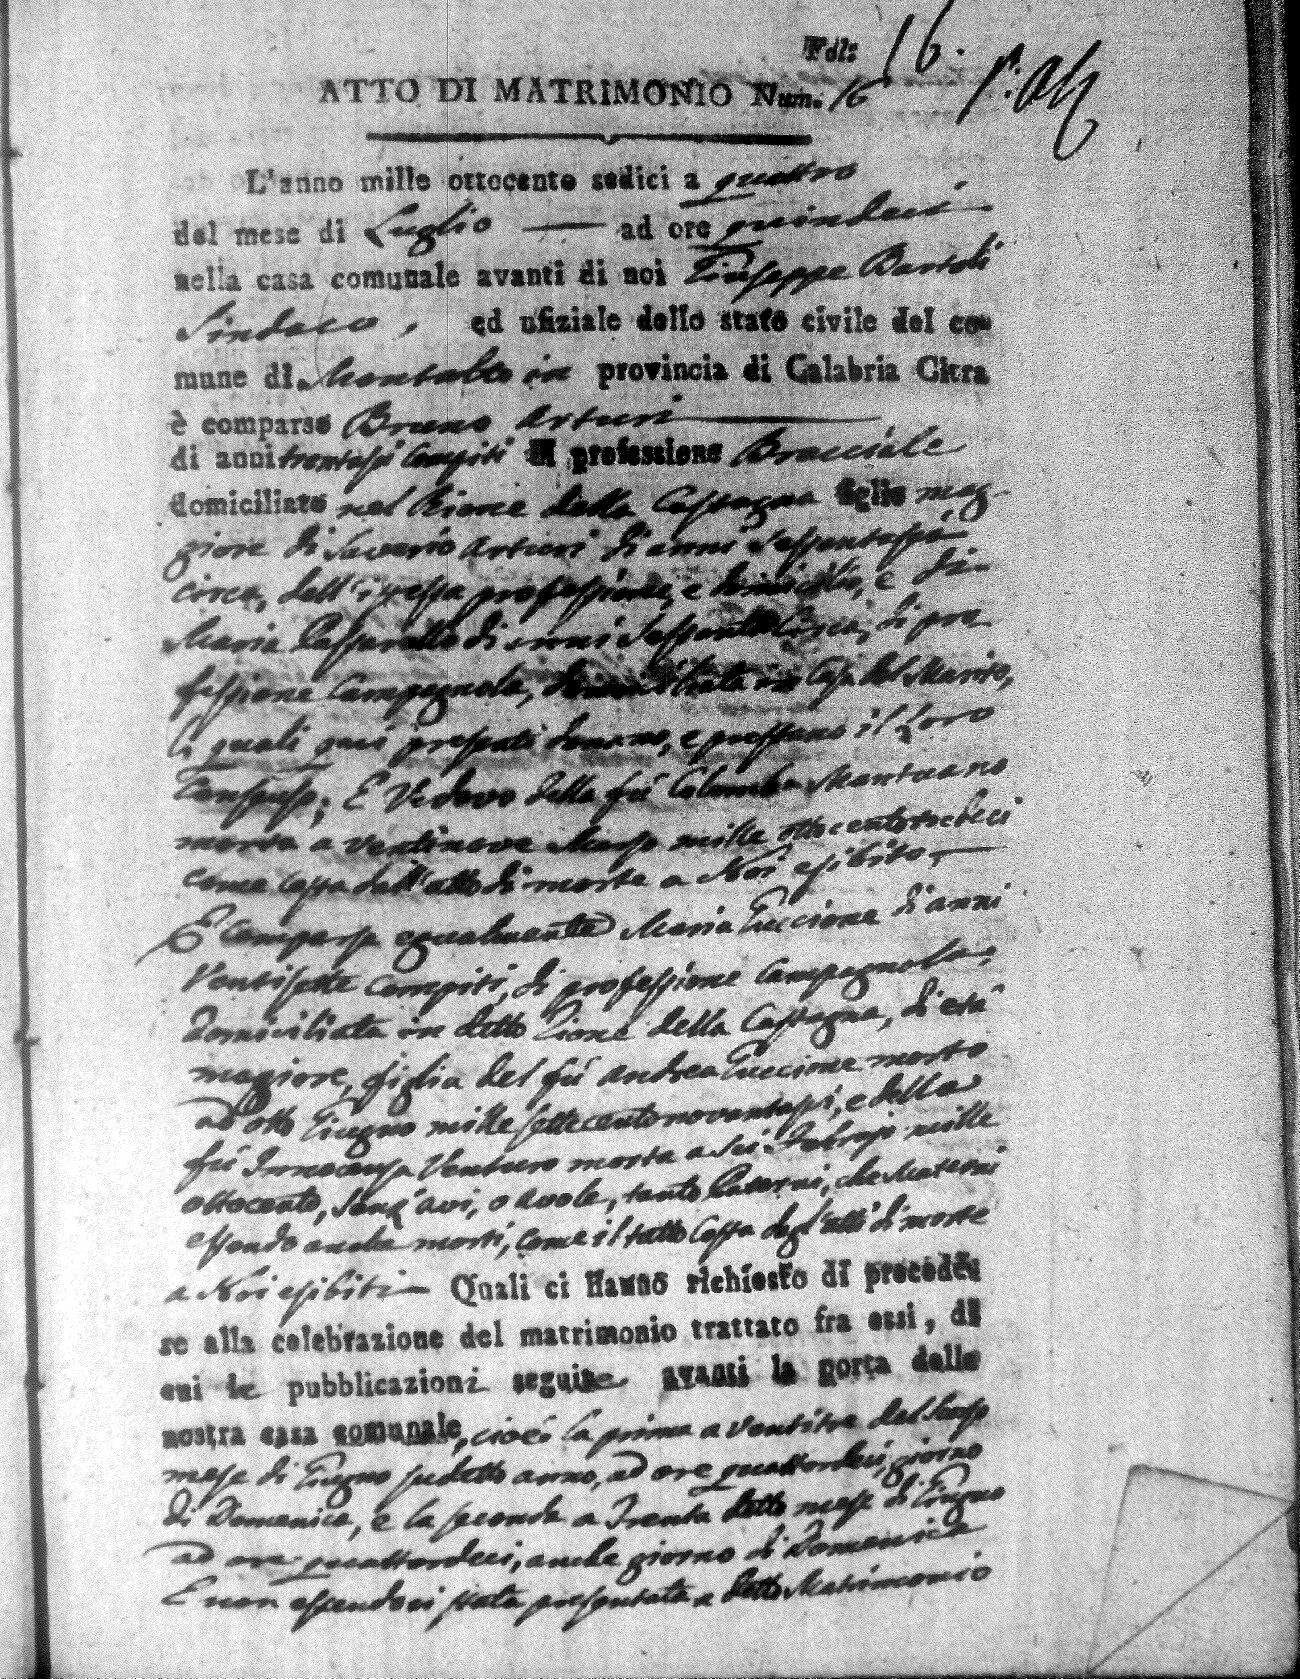 Fol: 16.
ATTO DI MATRIMONIO Num. 16
L'anno mille ottocento sedici a quattro
del mese di Luglio — ad ore quindeci
nella casa comunale avanti di noi Giuseppe Bartoli
Sindaco, ed ufiziale dello stato civile del co-
mune di Montalto in provincia di Calabria Citra
è comparso Bruno Arturi
di anni trentasei compiti di professione Bracciale
domiciliato nel Rione della Castagna figlio mag-
giore di Saverio Arturi di anni sessantasei
circa, dell'istessa professione, e domicilio, e di
Maria Passarella di anni sessanta circa, di pro
fessione Campagnola, domiciliata in casa del Marito,
li quali quì presenti donano, e prestano il loro
Consenso; E Vedovo della fù Colomba Mantuano
morta a ventinove Marzo mille ottocentotredeci
come costa dall'atto di morte a Noi esibito —
E' Comparsa egualmente Maria Guccione di anni
Ventisette compiti, di professione Campagnola,
domiciliata in detto Rione della Castagna, di età
magiore, figlia del fù Andrea Guccione morto
ad otto Giugno mille settecentonovantasei, e della
fù Innocenza Venturo morta a sei Febrajo mille
ottocento, senz'avi, o avole, tanto Paterni, che Materni
essendo anche morti, come il tutto costa degl'atti di morte
a Noi esibiti — Quali ci hanno richiesto di procede-
re alla celebrazione del matrimonio trattato fra essi, di
cui le pubblicazioni seguite avanti la porta della
nostra casa comunale, cioè: la prima a ventitre del scorso
mese di Giugno sudetto anno, ad ore quattordeci, giorno
di Domenica, e la seconda a Trenta detto mese di Giugno
ad ore quattordeci, anche giorno di Domenica
E non essendoci stata presentata a detto Matrimonio